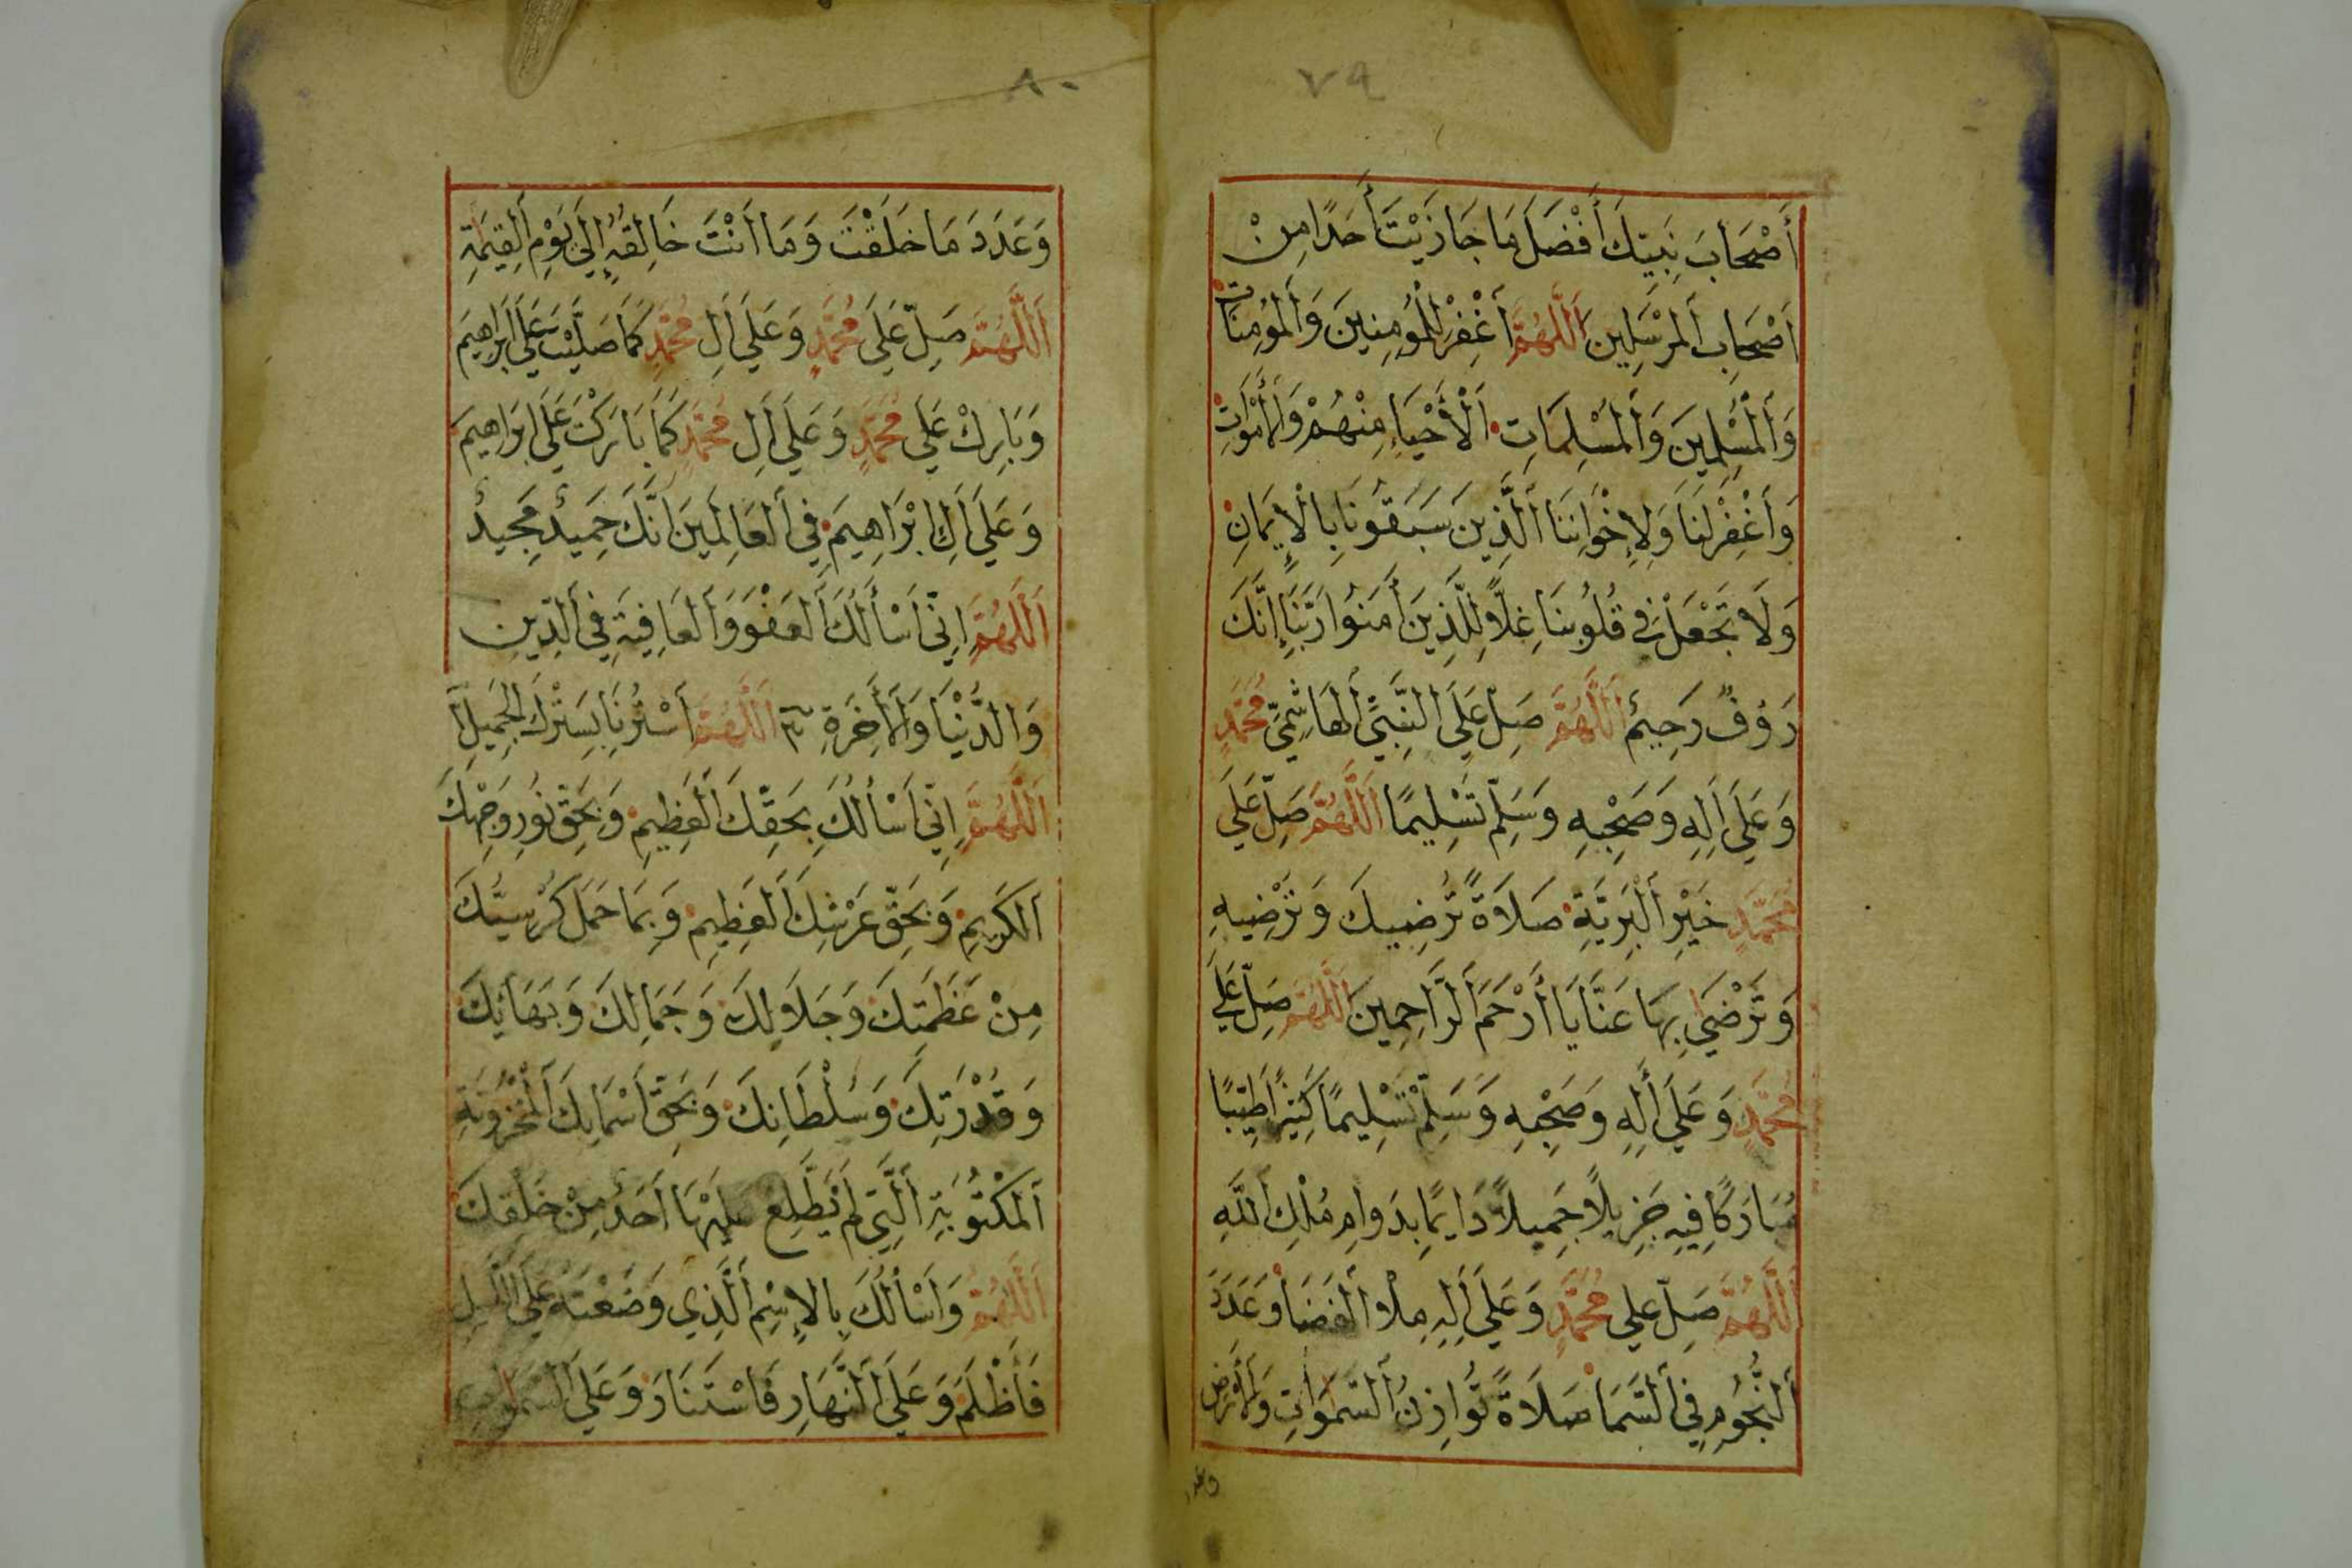 ٧٩
أَصْحَابَ نَبِيِّكَ أَفْضَلَ مَا جَازَيْتَ أَحَدًا مِنْ
أَصْحَابِ اَلْمُرْسَلِينَ اَللَّهُمَّ اَغْفِرْ لِلْمُؤْمِنِينَ وَاَلْمُؤْمِنَاتِ
وَاَلْمُسْلِمِينَ وَاَلْمُسْلِمَاتِ اَلْأَحْيَاءِ مِنْهُمْ وَالْأَمْوَاتِ
وَاَغْفِرْ لَنَا وَلِإِخْوَانِنَا اَلَّذِينَ سَبَقُونَا بِالْإِيمَانِ
وَلَا تَجْعَلْ فِي قُلُوبِنَا غِلًّا لِلَّذِينَ أَمَنُوا رَبَّنَا إِنَّكَ
رَؤُفٌ رَحِيمٌ اَللَّهُمَّ صَلِّ عَلَى النَّبِيِّ اَلْهَاشِمِيِّ مُحَمَّدٍ
وَعَلَى أَلِهِ وَصَحْبِهِ وَسَلِّمْ تَسْلِيمًا اَللَّهُمَّ صَلِّ عَلَى
مُحَمَّدٍ خَيْرِ اَلْبَرِيَّةِ صَلَاةً تُرْضِيكَ وَتُرْضِيهِ
وَتَرْضَى بِهَا عَنَّا يَا أَرْحَمَ اَلرَّاحِمِينَ اَللَّهُمَّ صَلِّ عَلَى
مُحَمَّدٍ وَعَلَى أَلِهِ وَصَحْبِهِ وَسَلِّمْ تَسْلِيمًا كَثِيرًا طَيِّبًا
مُبَارَكًا فِيهِ جَزِيلًا جَمِيلًا دَايِمًا بِدَوَامِ مُلْكِ اَللَّهِ
اَللَّهُمَّ صَلِّ عَلَى مُحَمَّدٍ وَعَلَى أَلِهِ مِلْأَ اَلْفَضَا وَعَدَدَ
اَلنُّجُومِ فِي اَلسَّمَا صَلَاةً تُوَازِنُ اَلسَّمَوَاتِ وَالْأَرْضَ
وعدد
٨٠
وَعَدَدَ مَا خَلَقْتَ وَمَا اَنْتَ خَالِقُهُ إِلَى يَوْمِ اَلْقِيَمَةِ
اَللَّهُمَّ صَلِّ عَلَى مُحَمَّدٍ وَعَلَى أَلِ مُحَمَّدٍ كَمَا صَلَّيْتَ عَلَى اِبْرَاهِيمَ
وَبَارِكْ عَلَى مُحَمَّدٍ وَعَلَى أَلِ مُحَمَّدٍ كَمَا بَارَكْتَ عَلَى اِبْرَاهِيمَ
وَعَلَى أَلِ اِبْرَاهِيمَ فِي اَلْعَالَمِينَ اِنَّكَ حَمِيدٌ مَجِيدٌ
اَللَّهُمَّ اِنِّي اَسْأَلُكَ اَلْعَفْوَ وَاَلْعَافِيَةَ فِي اَلدِّينِ
وَالدُّنْيَا وَالْأَخِرَةِ ٣ اَللَّهُمَّ اَسْتُرْنَا بِسَتْرِكَ الْجَمِيلِ
اَللَّهُمَّ اِنِّي اَسْأَلُكَ بِحَقِّكَ اَلْعَظِيمِ وَبِحَقِّ نُورِ وَجْهِكَ
اَلْكَرِيمِ وَبِحَقِّ عَرْشِكَ اَلْعَظِيمِ وَبِمَا حَمَلَ كُرْسِيُّكَ
مِنْ عَظَمَتِكَ وَجَلَالِكَ وَجَمَالِكَ وَبَهَائِكَ
وَقُدْرَتِكَ وَسُلْطَانِكَ وَبِحَقِّ اَسْمَايِكَ اَلْمَخْزُونَةِ
اَلْمَكْتُوبَةِ اَلَّتِي لَمْ يَطَّلِعْ عَلَيْهَا اَحَدٌ مِنْ خَلْقِكَ
اَللَّهُمَّ وَاَسْأَلُكَ بِالْاِسْمِ اَلَّذِي وَضَعْتَهُ عَلَى اَللَّيْلِ
فَأَظْلَمَ وَعَلَى اَلنَّهَارِ فَاسْتَنَارَ وَعَلَى السَّمَوَاتِ